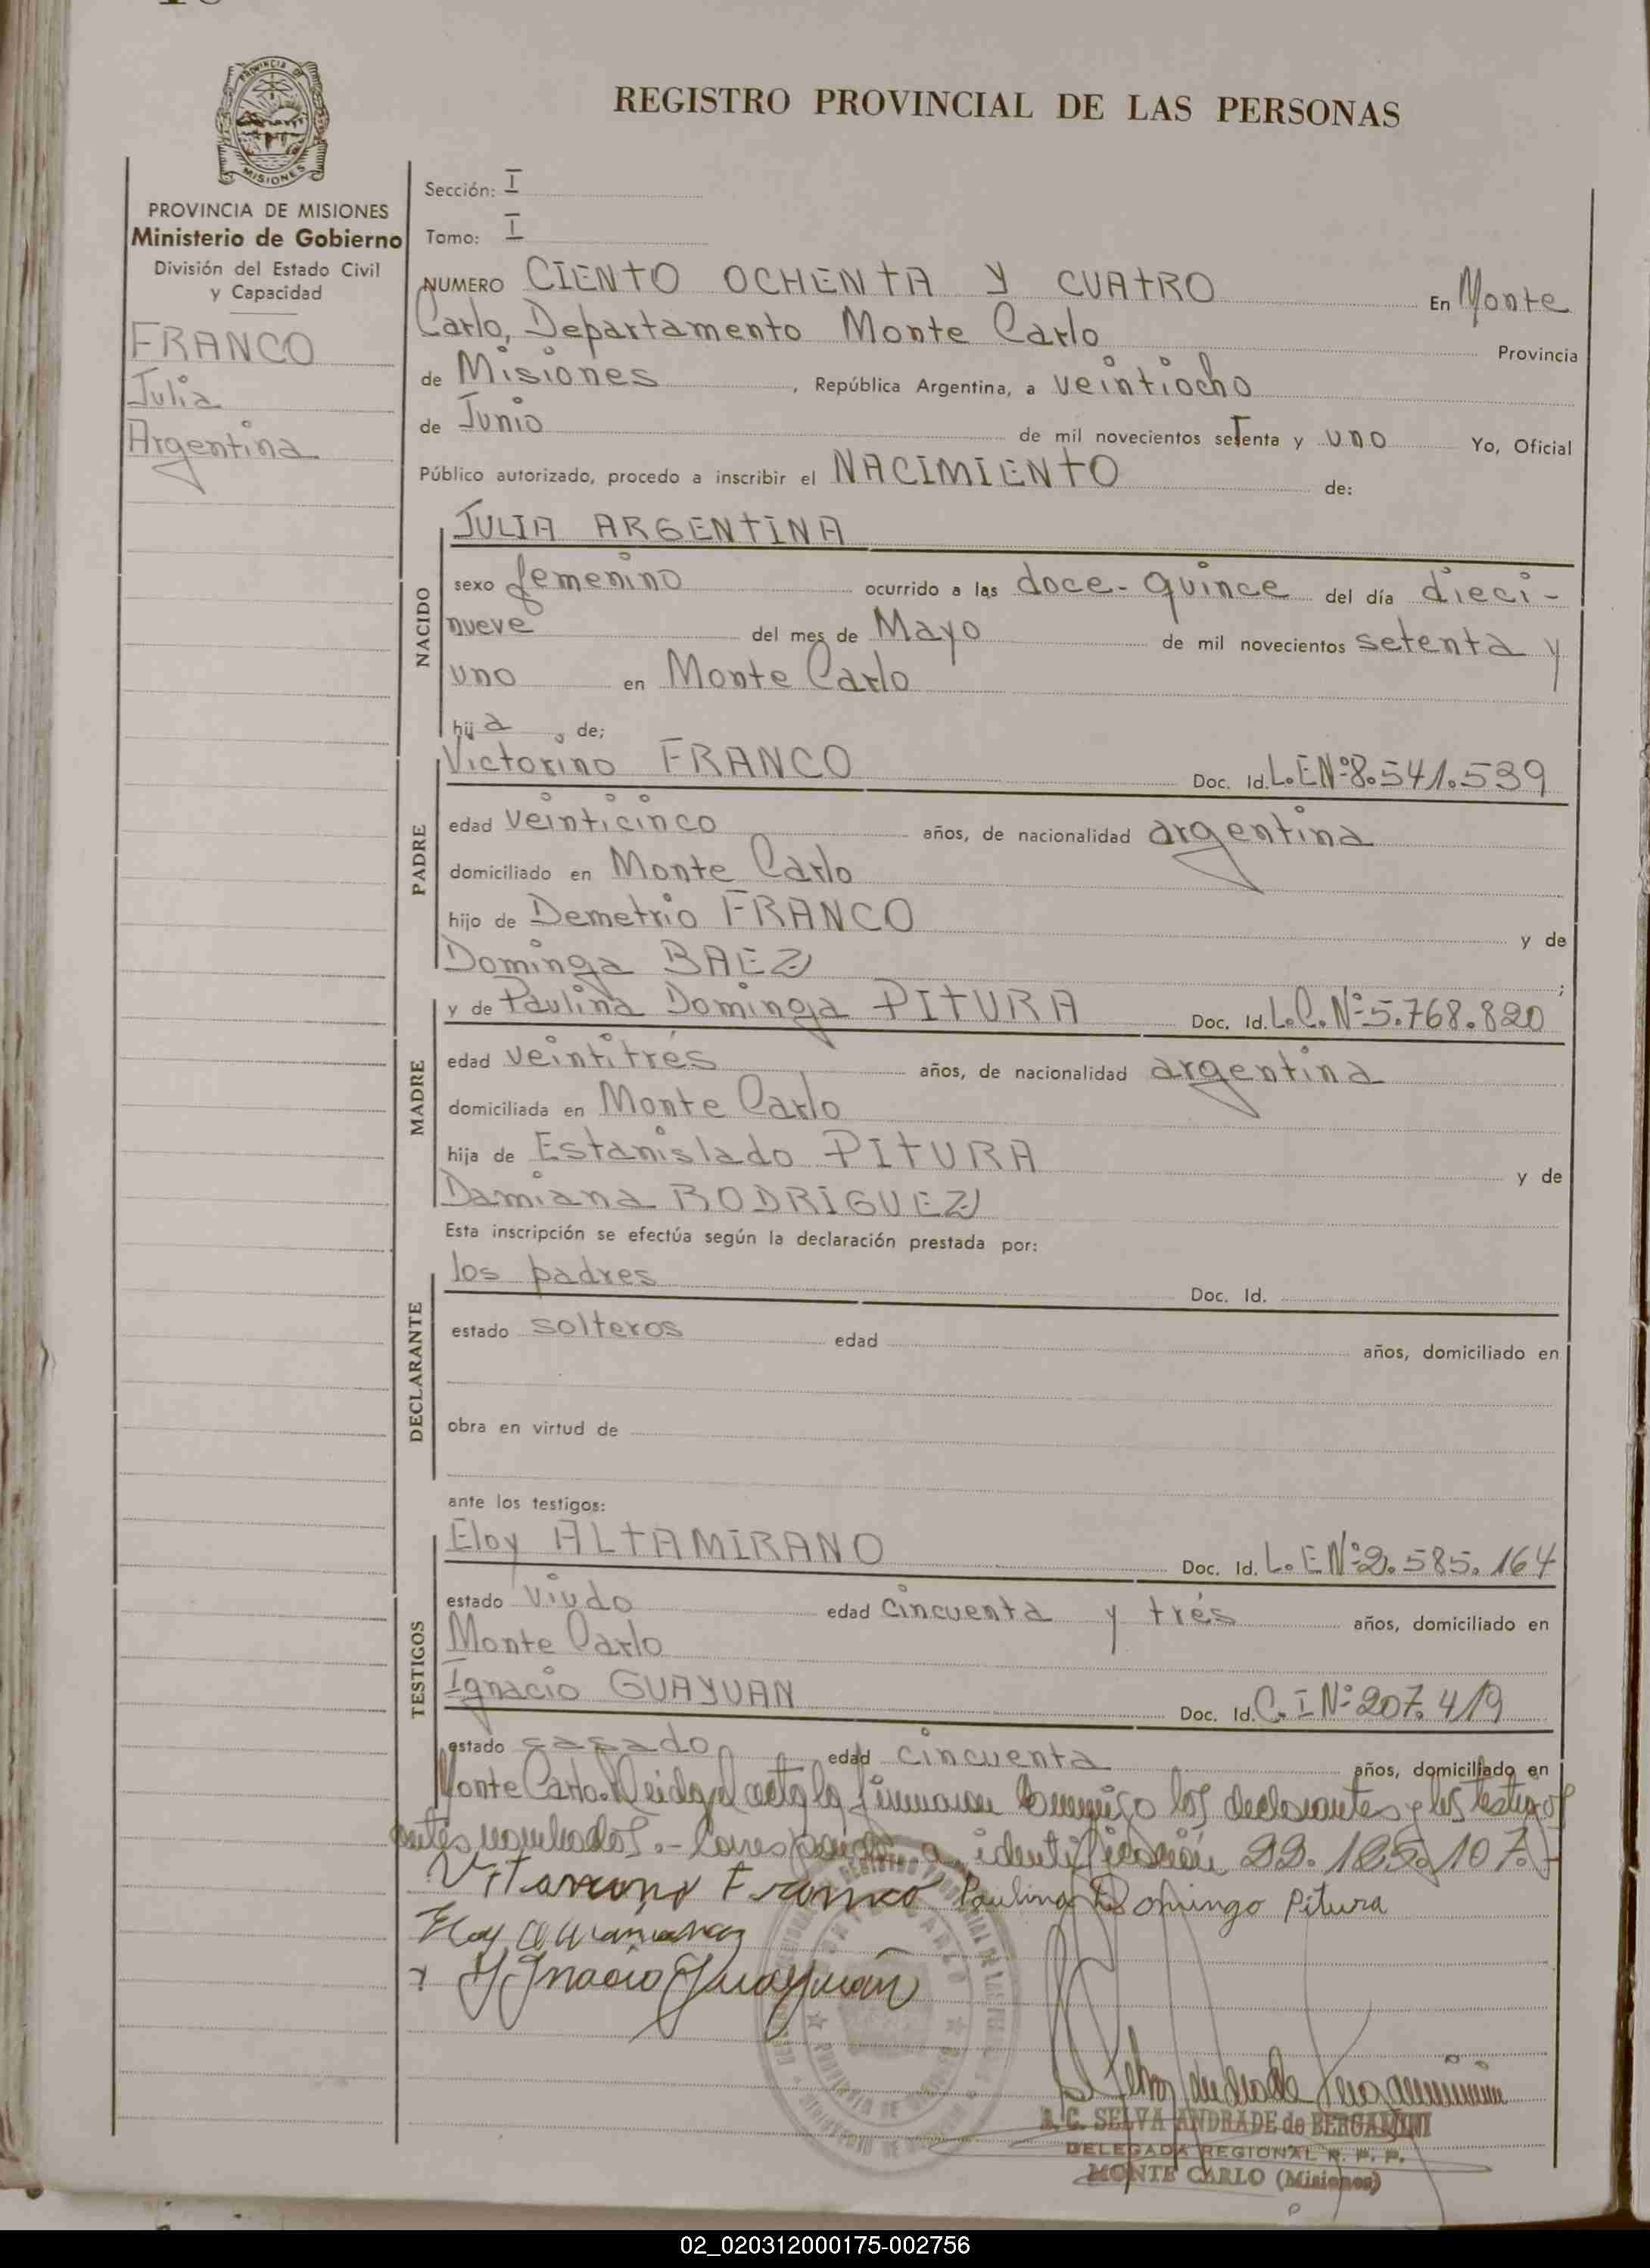 REGISTRO PROVINCIAL DE LAS PERSONAS
PROVINCIA DE
MISIONES
PROVINCIA DE MISIONES
Ministerio de Gobierno
División del Estado Civil
y Capacidad
FRANCO
Julia
Argentina
Sección: I
Tomo: I
NUMERO CIENTO OCHENTA Y CUATRO En Monte
Carlo, Departamento Monte Carlo Provincia
de Misiones, República Argentina, a veintiocho
de Junio de mil novecientos setenta y uno Yo, Oficial
Público autorizado, procedo a inscribir el NACIMIENTO de:
NACIDO
JULIA ARGENTINA
sexo femenino ocurrido a las doce-quince del día dieci-
nueve del mes de Mayo de mil novecientos setenta y
uno en Monte Carlo
hija, de;
PADRE
Victorino FRANCO Doc. Id. L.E Nº 8.541.539
edad veinticinco años, de nacionalidad argentina
domiciliado en Monte Carlo
hijo de Demetrio FRANCO y de
Dominga BAEZ ;
MADRE
y de Paulina Dominga PITURA Doc. Id. L.C. Nº 5.768.820
edad veintitrés años, de nacionalidad argentina
domiciliada en Monte Carlo
hija de Estanislado PITURA y de
Damiana RODRIGUEZ
Esta inscripción se efectúa según la declaración prestada por:
DECLARANTE
los padres Doc. Id.
estado solteros edad años, domiciliado en
obra en virtud de
ante los testigos:
TESTIGOS
Eloy ALTAMIRANO Doc. Id. L.E Nº 2.585.164
estado viudo edad cincuenta y trés años, domiciliado en
Monte Carlo
Ignacio GUAYUAN Doc. Id. C.I Nº 207.419
estado casado edad cincuenta años, domiciliado en
Monte Carlo. Leida el acta la firman conmigo los declarantes y los testigos
antes nombrados.- Corresponde a identificación 22.125.107.-
Franco Paulina Domingo Pitura
Eloy
Ignacio Guayuán
S. C. SELVA ANDRADE de BERGAMINI
DELEGADA REGIONAL R. P. P.
MONTE CARLO (Misiones)
02_020312000175-002756